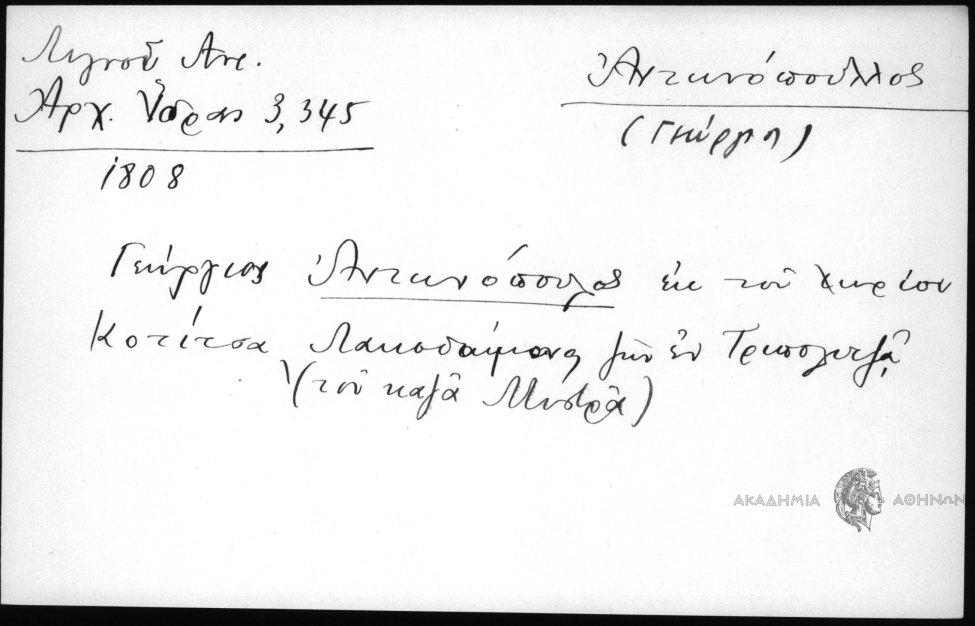 Λιγνοῦ Ἀντ.
Ἀρχ. Ὕδρας 3, 345
1808
Ἀντωνόπουλλος
(Γεώργη)
Γεώργιος Ἀντωνόπουλος ἐκ τοῦ χωρίου
Κοτίτσα Λακεδαίμονος ζῶν ἐν Τριπολιτζᾷ
(τοῦ καζᾶ Μυστρᾶ)
ΑΚΑΔΗΜΙΑ ΑΘΗΝΩΝ